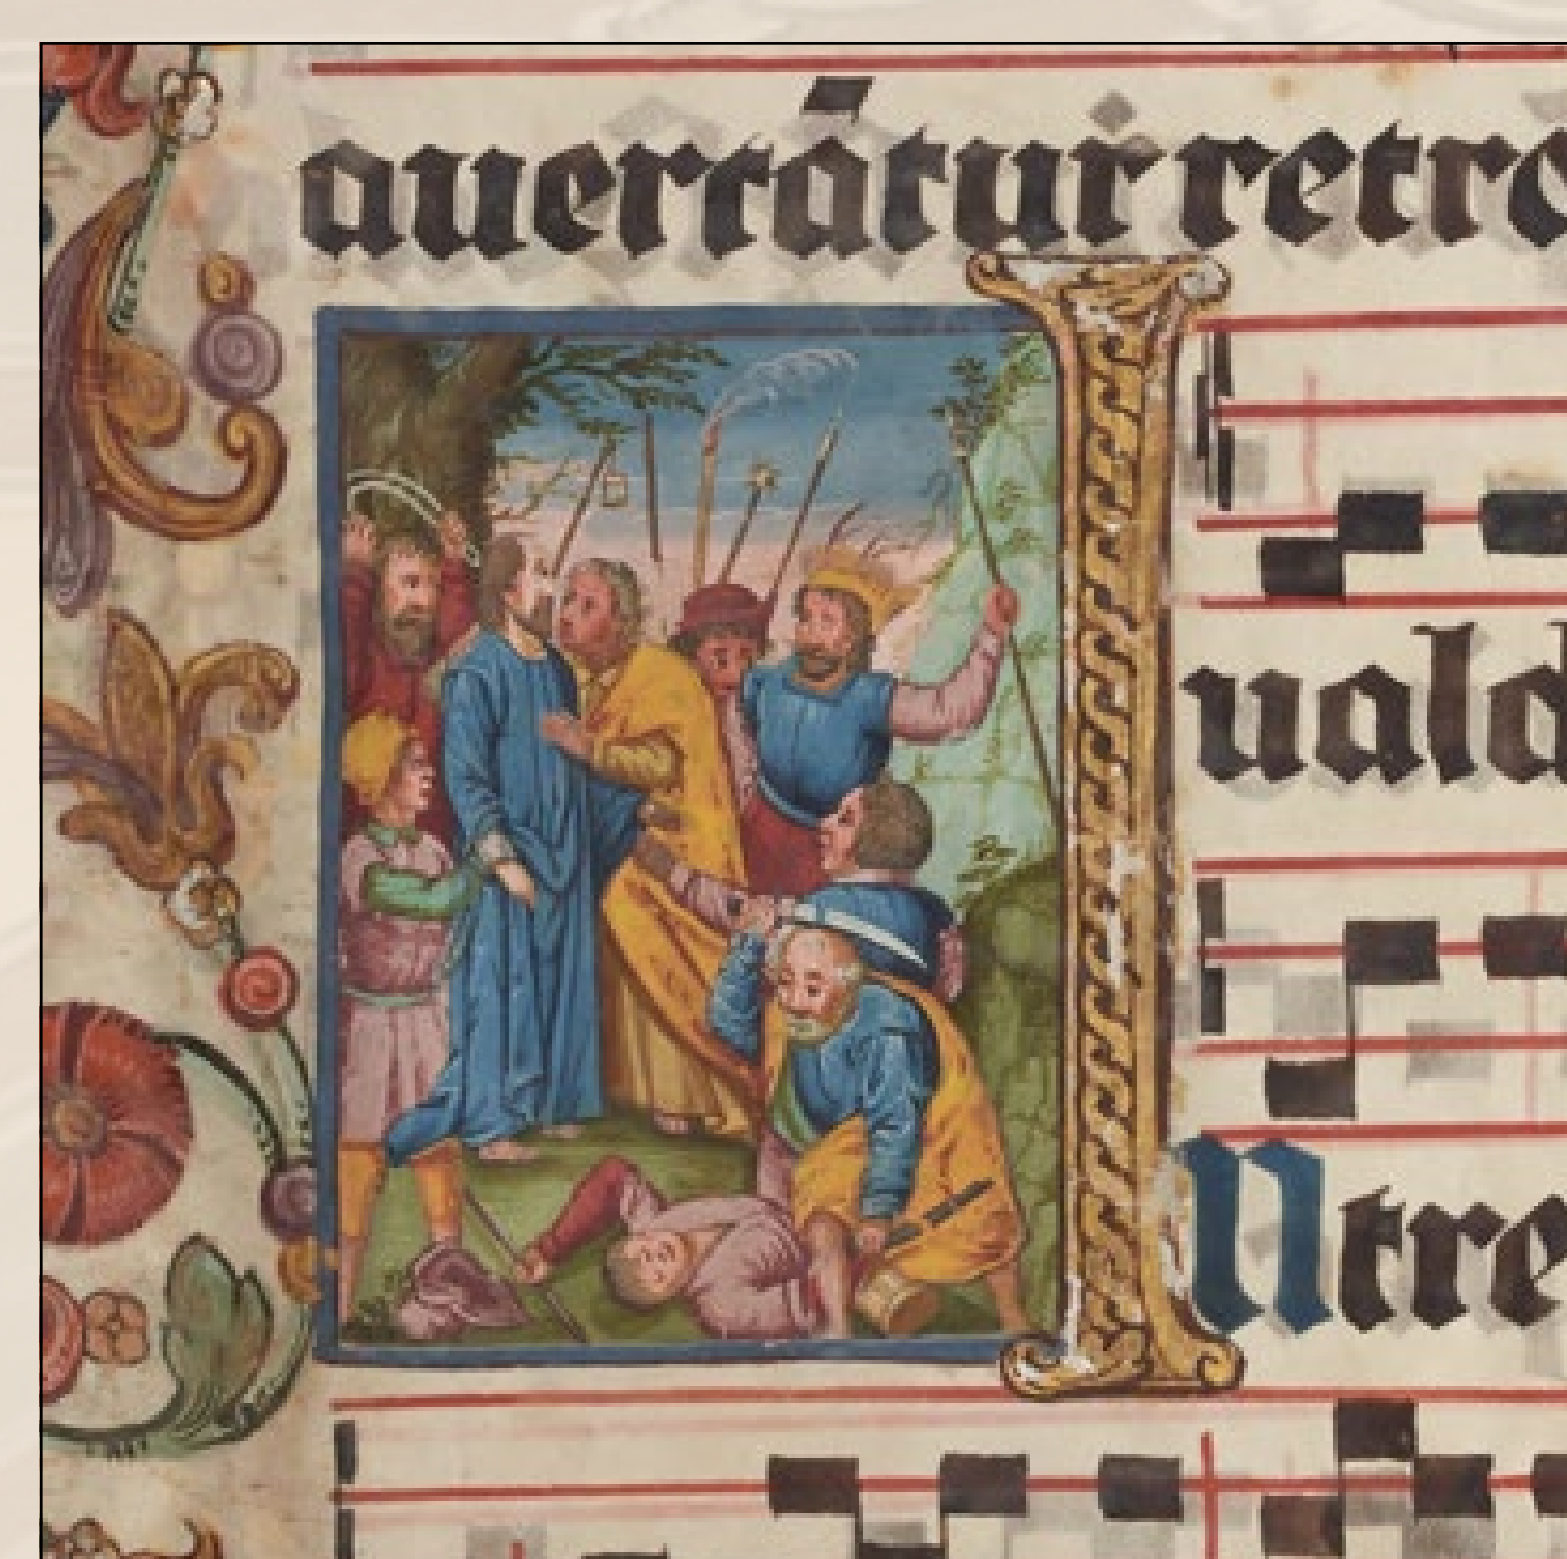 auertátur retro
uald
INtre